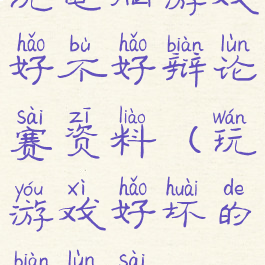 玩电脑游戏
hǎo bù hǎo biàn lùn
好不好辩论
sài zī liào wán
赛资料(玩
yóu xì hǎo huài de
游戏好坏的
biàn lùn sài